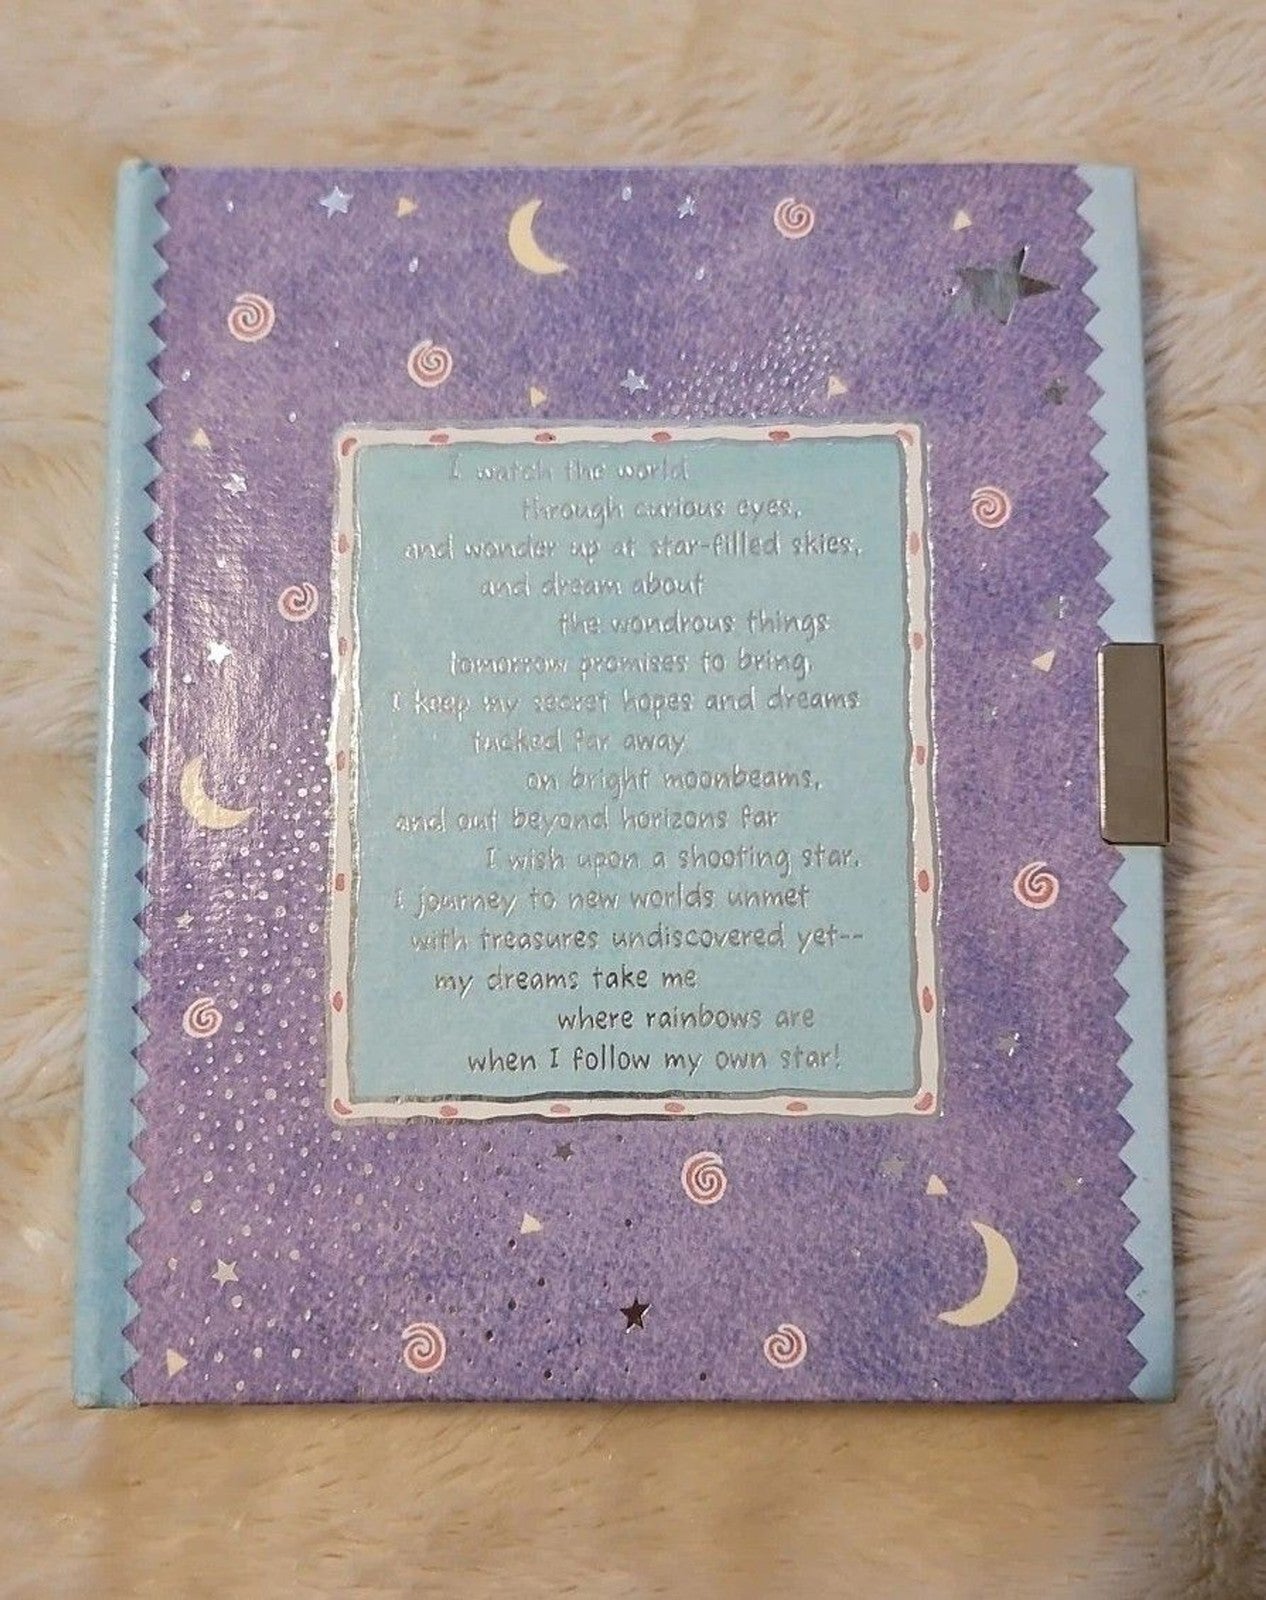 I watch the world
through curious eyes,
and wonder up at star-filled skies,
and dream about
the wondrous things
tomorrow promises to bring,
I keep my secret hopes and dreams
tucked far away
on bright moonbeams,
and out beyond horizons far
I wish upon a shooting star.
I journey to new worlds unmet
with treasures undiscovered yet--
my dreams take me
where rainbows are
when I follow my own star!